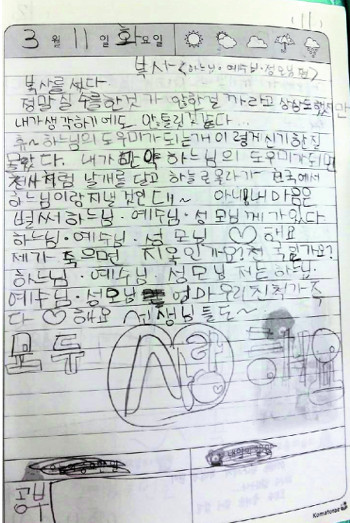 3월 11일 화요일
복사<하느님·예수님·성모님 편>
복사를 섰다.
정말 실수를 한것 가
내가 생각하기에도 안 틀린것 같다...
휴~하느님의 도우미가 되는게 이렇게 신기한 일
몰랐다. 내가 하느님의 도우미가 되면
천사처럼 날개를 달고 하늘로 올라가 천국에서
하느님이랑 지낼 텐데~ 아니 내 마음은
벌써 하느님·예수님·성모님께 가 있다
하느님·예수님·성모님 ♡해요
제가 죽으면 지옥인가요? 천국인가요?
하느님·예수님·성모님 저는 하느님
예수님·성모님 엄마 우리 친척 가족
다 ♡해요 선생님들도~
모두 사랑
내일의
공부
Komatoree